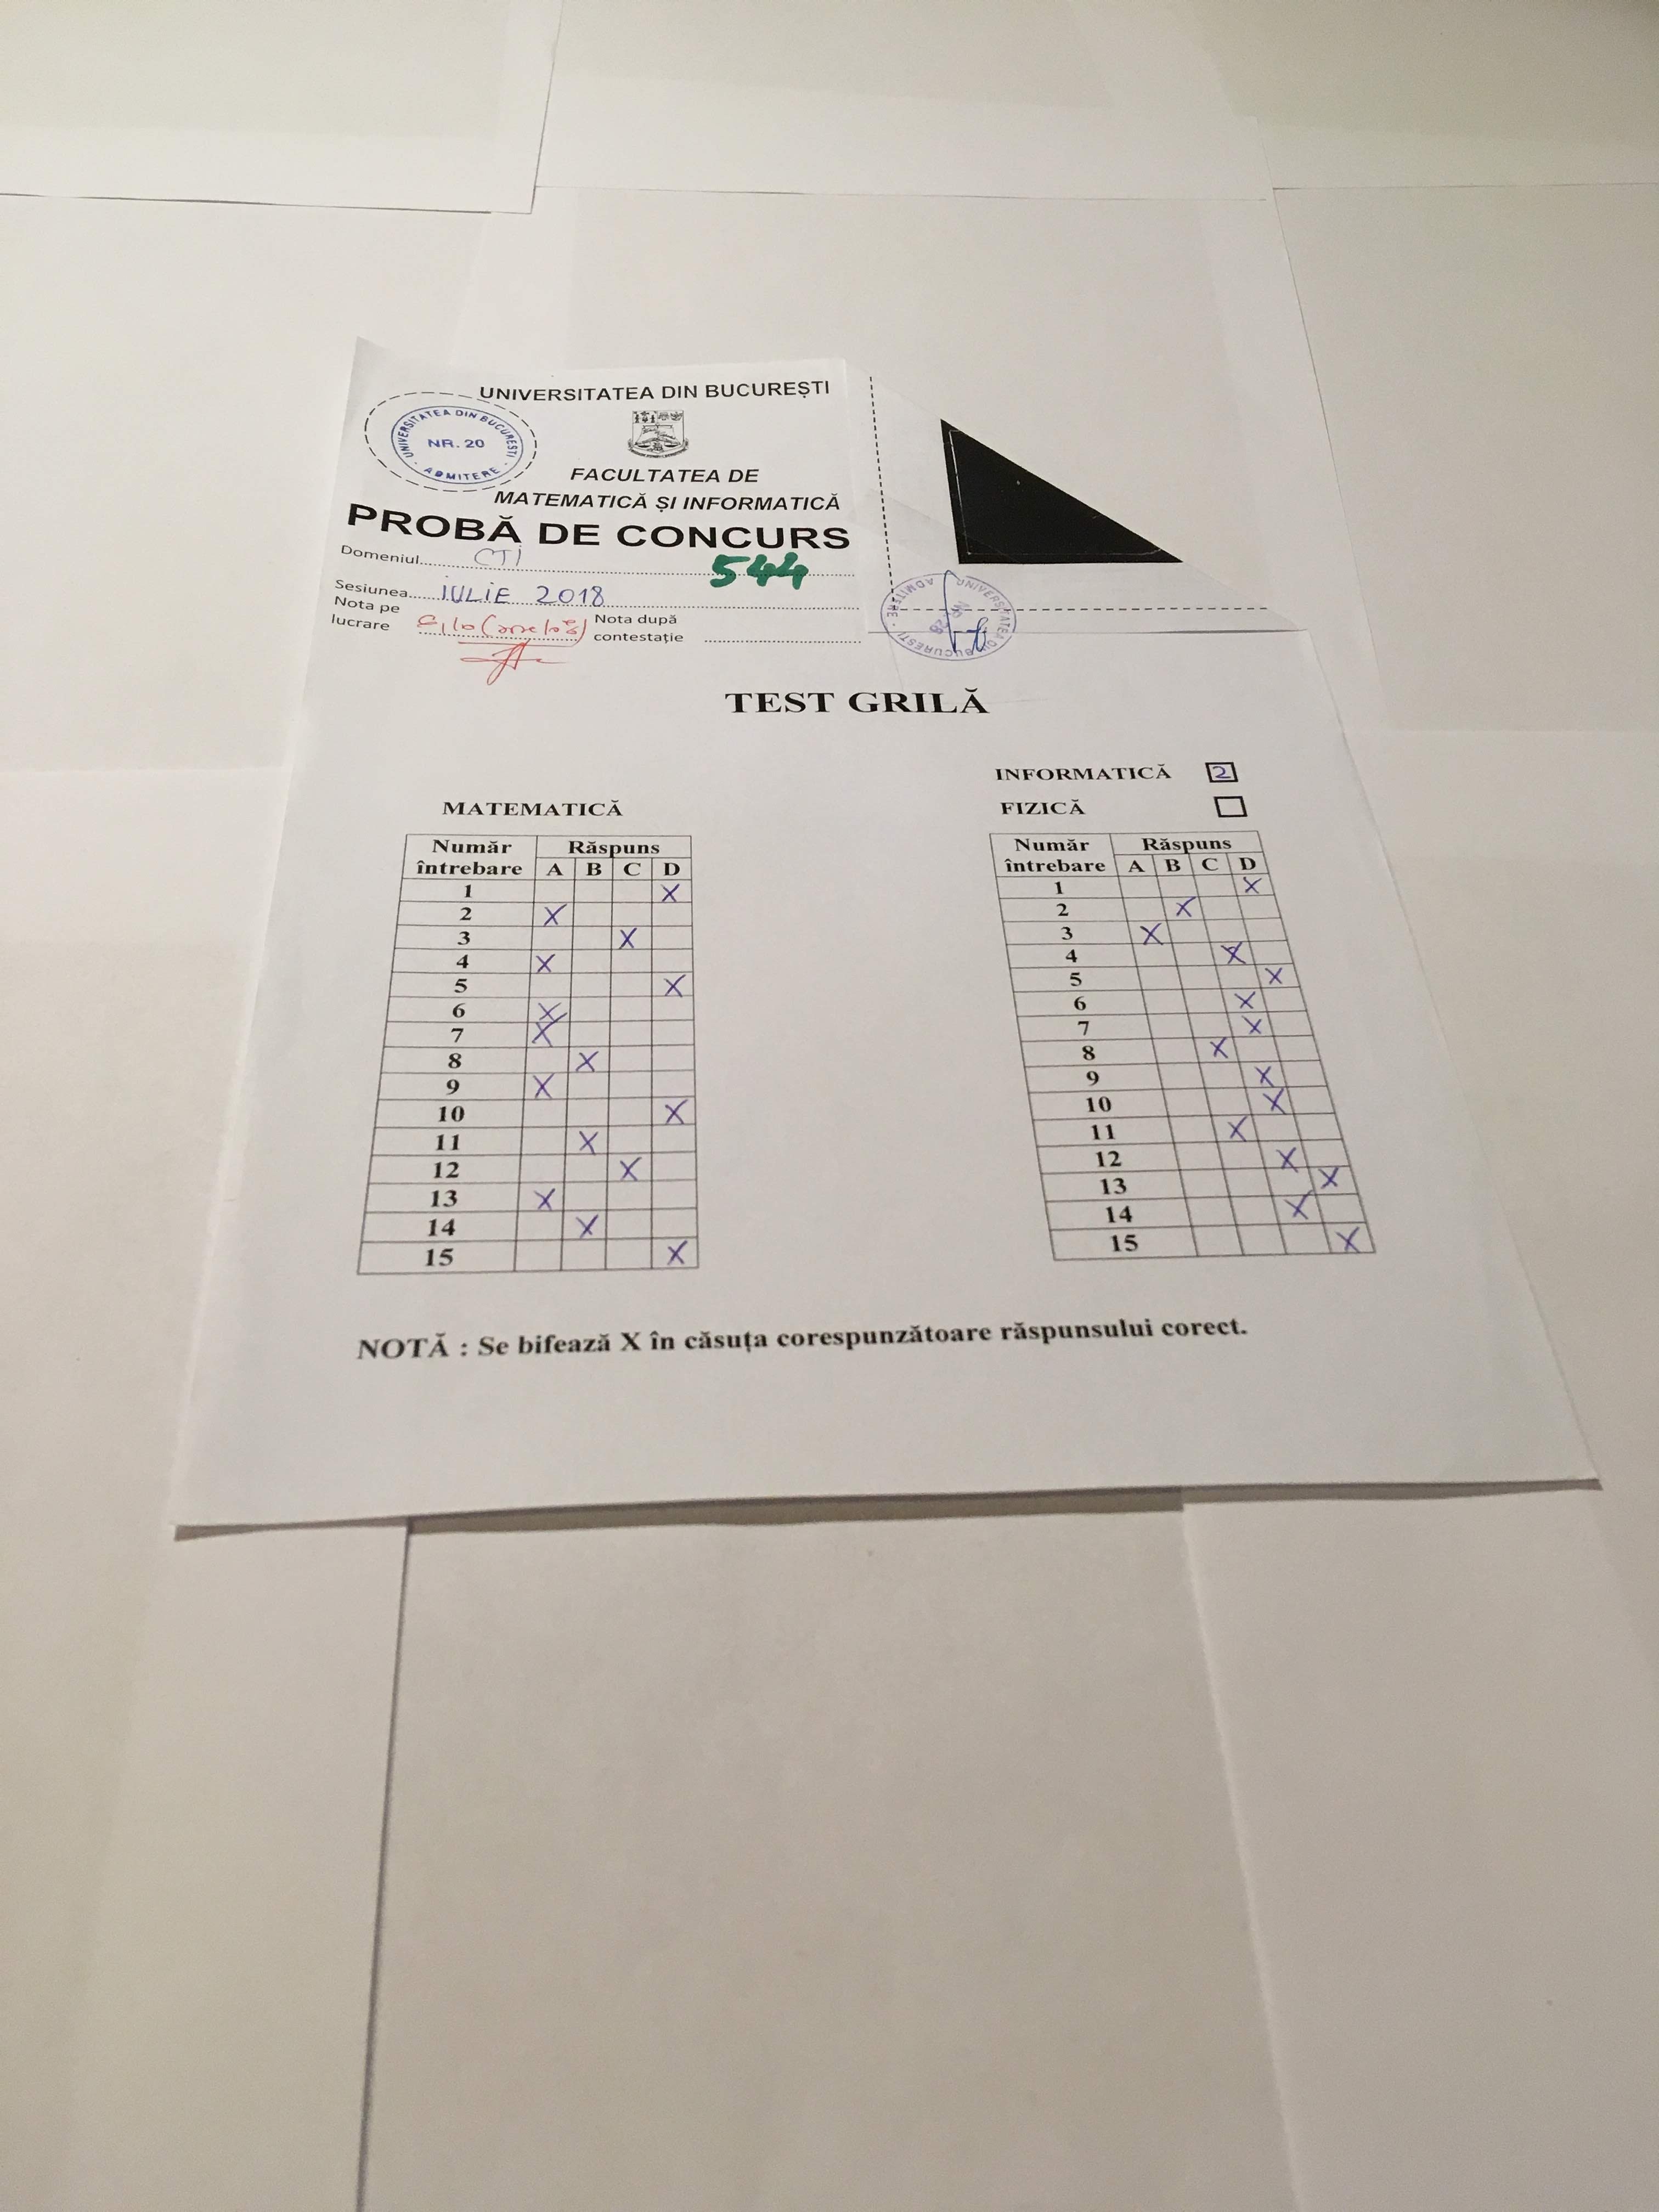 UNIVERSITATEA DIN BUCUREȘTI
UNIVERSITATEA DIN BUCUREȘTI
NR. 20
ADMITERE
FACULTATEA DE
MATEMATICĂ ȘI INFORMATICĂ
PROBĂ DE CONCURS
Domeniul CTI
544
Sesiunea IULIE 2018
Nota pe lucrare
Nota după contestație
UNIVERSITATEA DIN BUCUREȘTI
ADMITERE
TEST GRILĂ
MATEMATICĂ
Număr întrebare Răspuns
A B C D
1 X
2 X
3 X
4 X
5 X
6 X
7 X
8 X
9 X
10 X
11 X
12 X
13 X
14 X
15 X
INFORMATICĂ 2
FIZICĂ
Număr întrebare Răspuns
A B C D
1 X
2 X
3 X
4 X
5 X
6 X
7 X
8 X
9 X
10 X
11 X
12 X
13 X
14 X
15 X
NOTĂ : Se bifează X în căsuța corespunzătoare răspunsului corect.